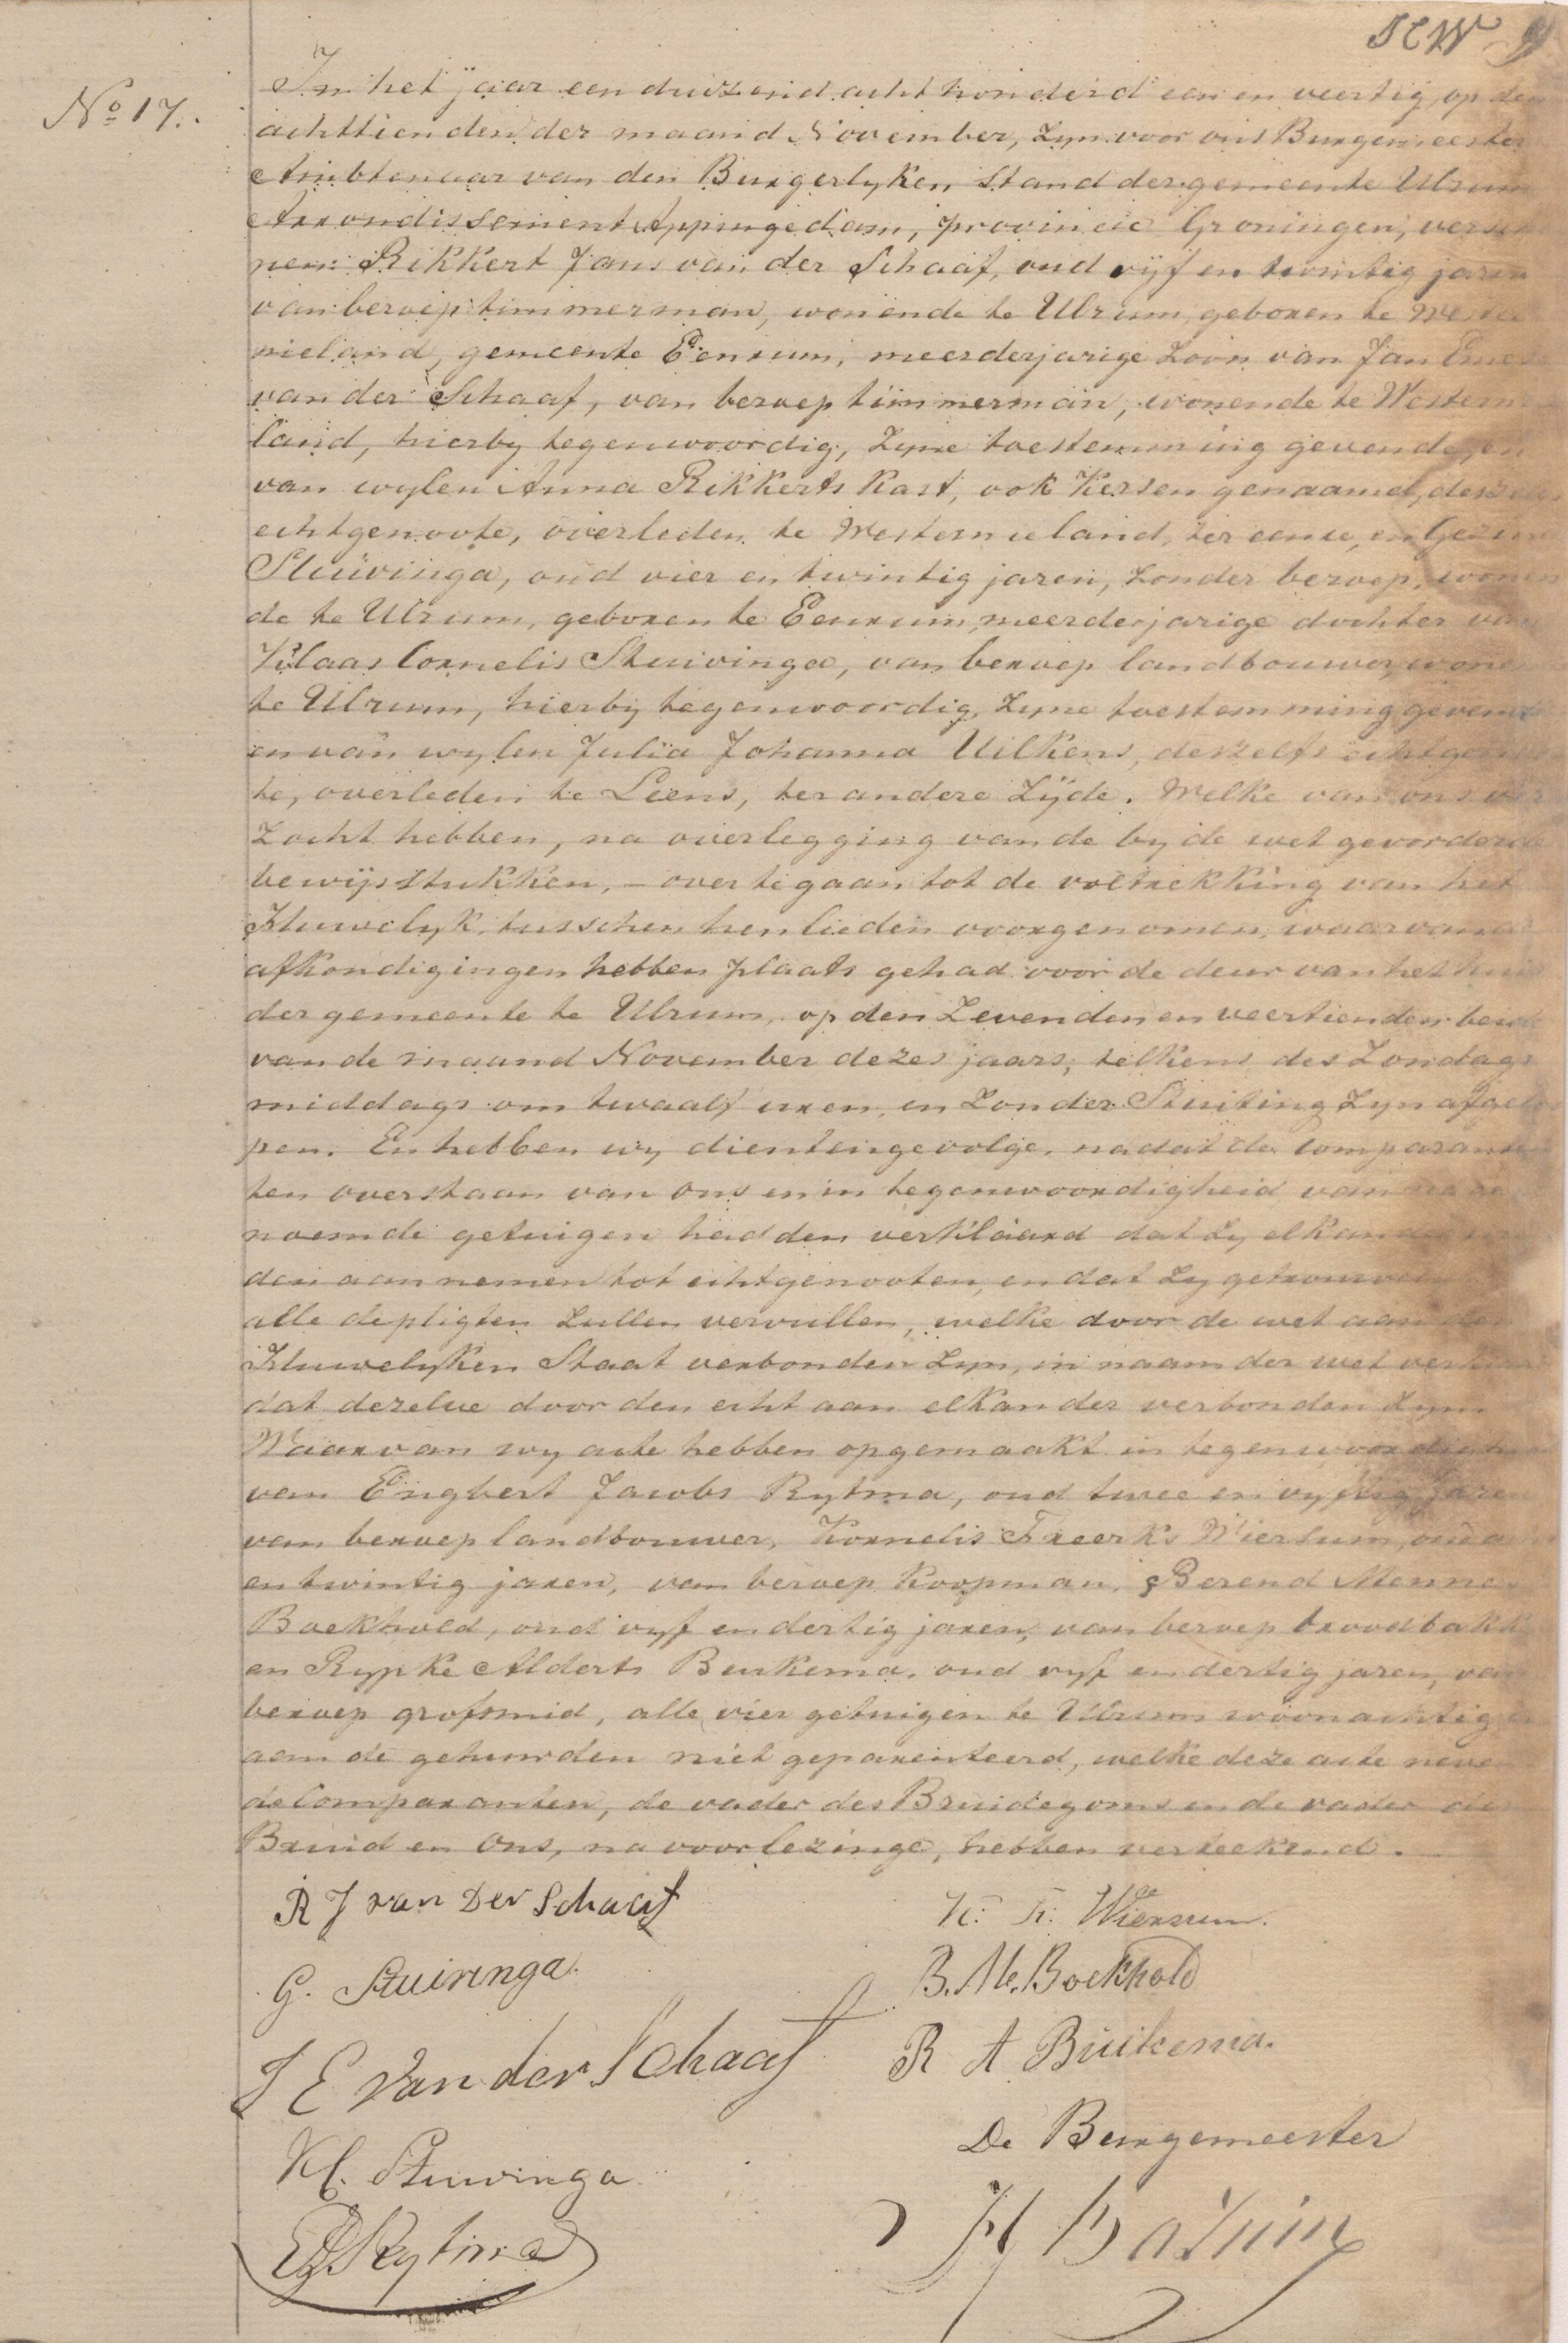 No 17.
In het jaar een duizend acht honderd een en veertig, op den
achttienden der maand November, zyn voor ons Burgemeester
Ambtenaar van den Burgerlyken Stand der gemeente Ulrum
Arrondissement Appingedam, provincie Groningen, versche
nen: Rikkert Jans van der Schaaf, oud vyf en twintig jaren
van beroep timmerman, wonende te Ulrum, geboren te Wester
nieland, gemeente Eenrum, meerderjarige Zoon van Jan
van der Schaaf, van beroep timmerman, wonende te Westernie
land, hierby tegenwoordig, Zyne toestemming gevende, en
van wylen Anna Rikkerts Kast, ook Kersen genaamd, deszelfs
echtgenoote, overleden te Westernieland, ter eenre, en
Stuivinga, oud vier en twintig jaren, Zonder beroep, wonen
de te Ulrum, geboren te Eenrum, meerderjarige dochter van
Klaas Cornelis Stuivinga, van beroep landbouwer, wonende
te Ulrum, hierby tegenwoordig, Zyne toestemming gevende
en van wylen Julia Johanna Uilkens, deszelfs echtgenoo
te, overleden te Leens, ter andere Zijde. Welke van ons ver
Zocht hebben, na overlegging van de by de wet gevorderde
bewijsstukken, – over te gaan tot de voltrekking van het
Huwelyk, tusschen hen lieden voorgenomen, waarvan de
afkondigingen hebben plaats gehad voor de deur van het huis
der gemeente te Ulrum, op den Zevenden en veertienden beide
van de maand November dezes jaars, telkens des Zondags
middags om twaalf uren, en Zonder Stuiting Zyn afgeloo
pen. En hebben wy dientengevolge, nadat de comparanten
ten overstaan van ons en in tegenwoordigheid van na
noemde getuigen hadden verklaard dat Zy elkander
den aannemen tot echtgenooten, en dat Zy getrouwelyk
alle de pligten Zullen vervullen, welke door de wet aan den
Huwelyken Staat verbonden Zyn, in naam der wet verklaard
dat dezelve door den echt aan elkander verbonden Zyn.
Waarvan wy acte hebben opgemaakt in tegenwoordigheid
van Engbert Jacobs Rytma, oud twee en vyftig jaren
van beroep landbouwer, Kornelis Freerks Wiersum, oud
en twintig jaren, van beroep Koopman, Berend Mennes
Boekhold, oud vyf en dertig jaren, van beroep broodbakker
en Rypke Alderts Beukema, oud vyf en dertig jaren, van
beroep grofsmid, alle vier getuigen te Ulrum woonachtig en
aan de gehuwden niet geparenteerd, welke deze acte nevens
de Comparanten, de vader des Bruidegoms en de vader der
Bruid en Ons, na voorlezinge, hebben verteekend.
R J van Der Schaaf
G. Stuivinga.
J E van der Schaaf
Kl. Stuivinga
E J Rytma
K. F. Wiersum.
B. M. Boekhold
R A Buikema.
De Burgemeester